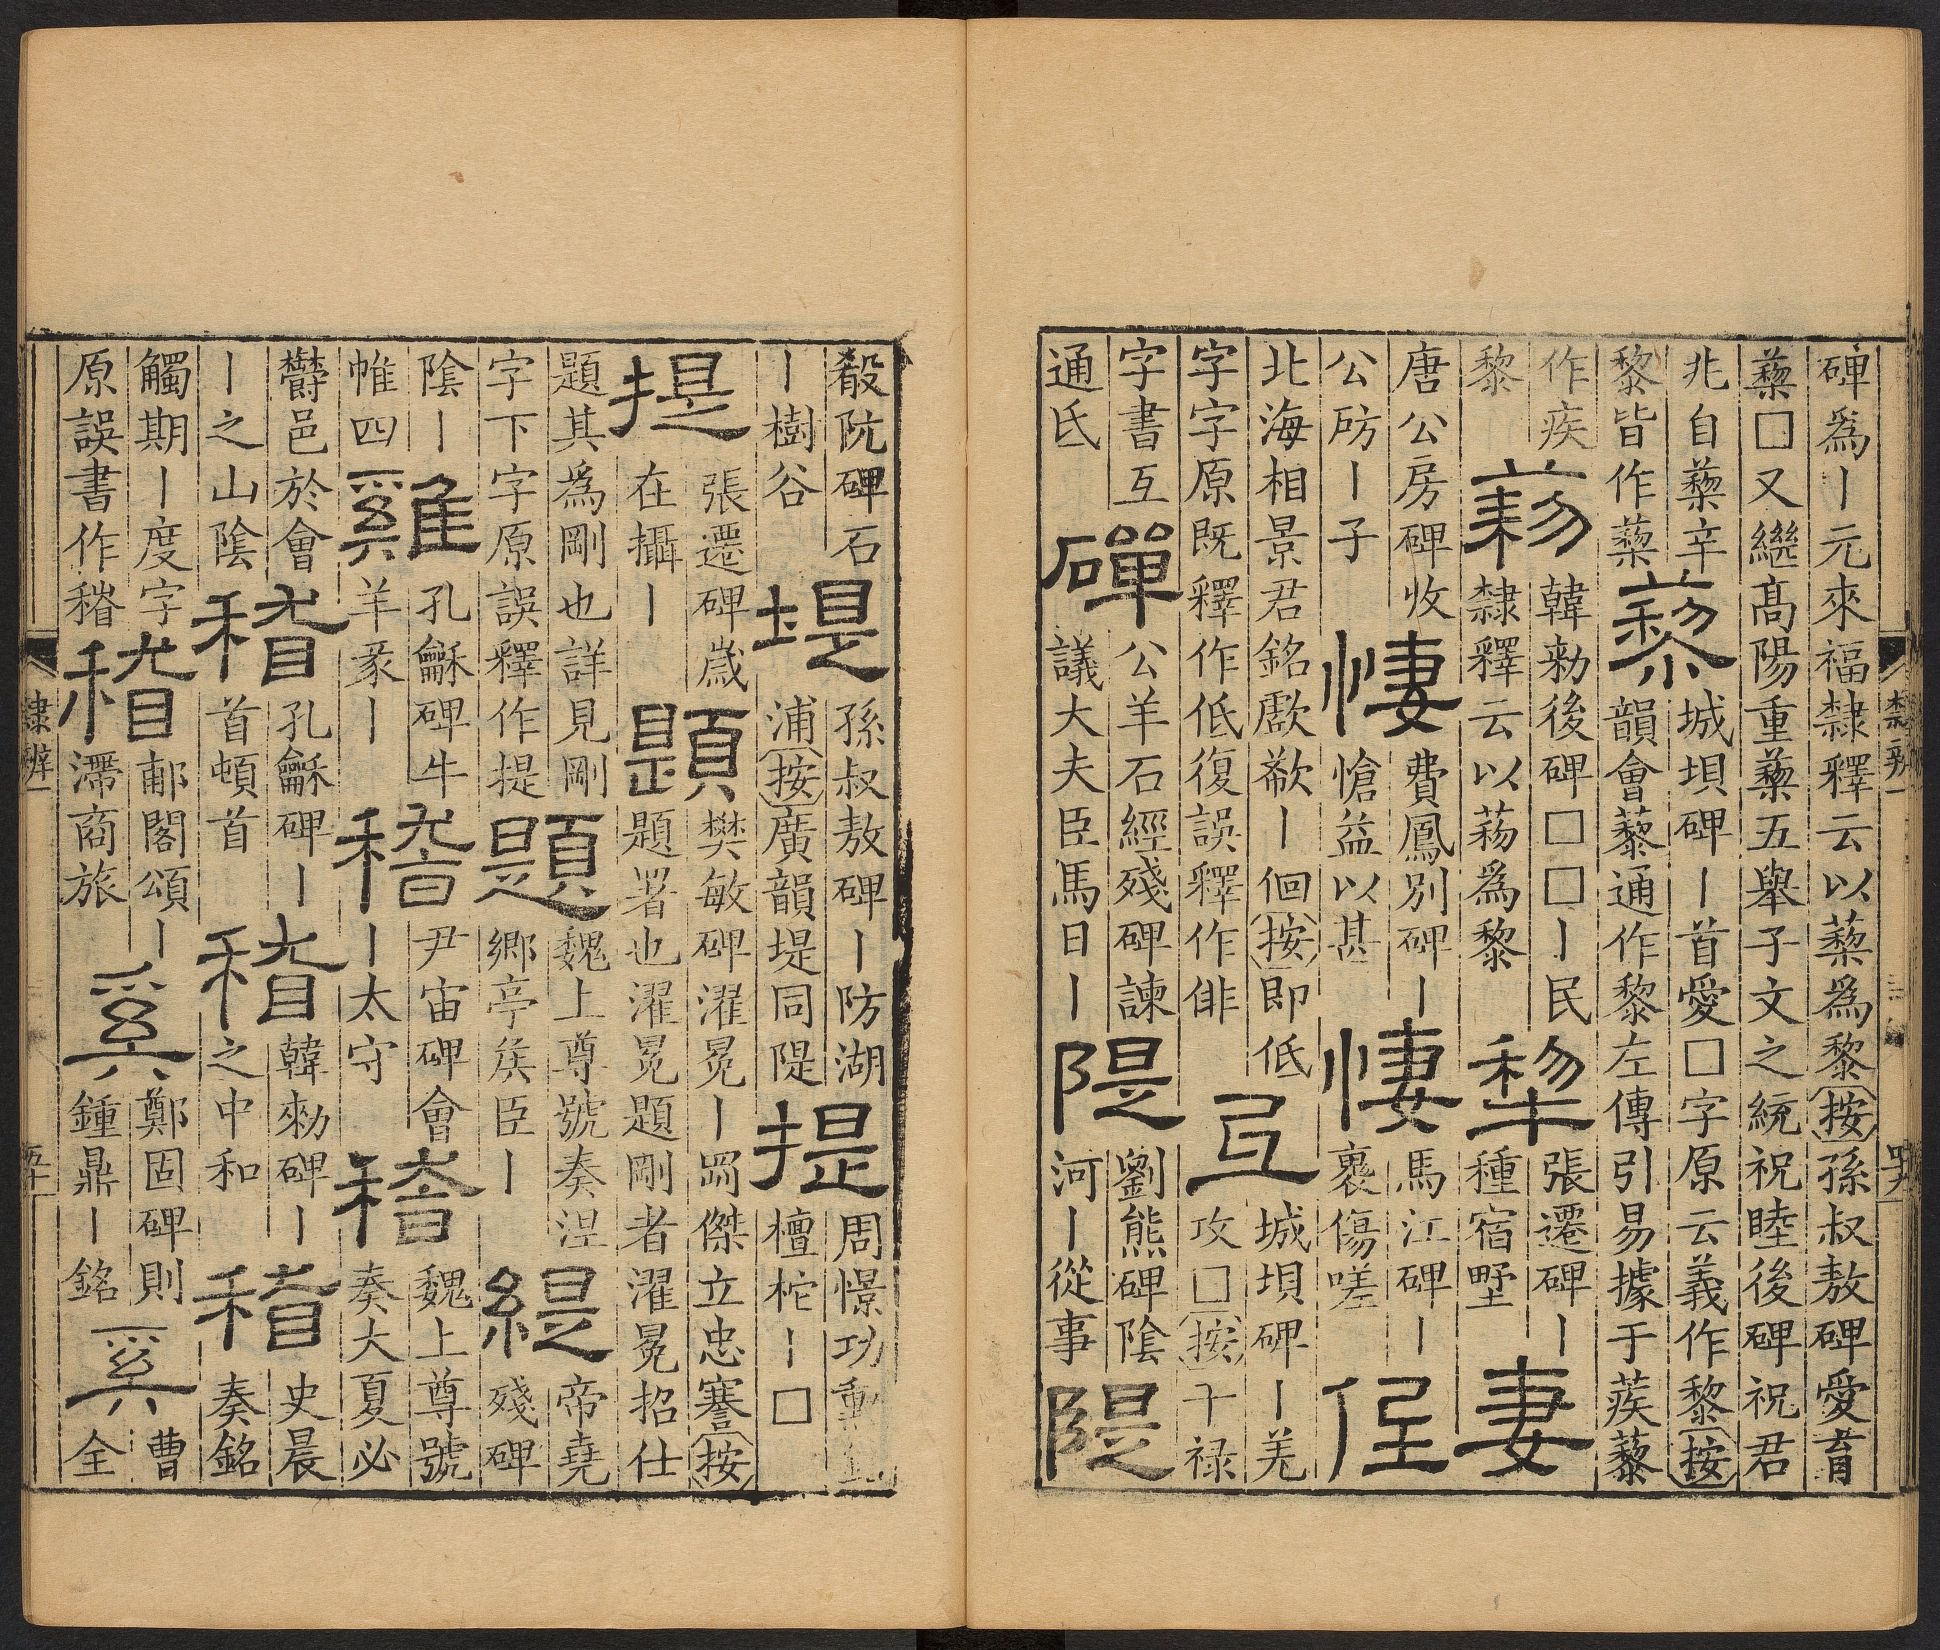 碑爲丨元來福隸釋云以蔾爲黎按孫叔敖碑愛育
蔾□又繼髙陽重蔾五舉子文之統祝睦後碑祝君
兆自蔾辛
黎皆作蔾
藜
城垻碑丨首愛□字原云義作黎按
韻會藜通作黎左傳引易據于蒺藜
作疾
黎
韓勑後碑□□丨民
隸釋云以爲黎
犂
張遷碑丨
種宿墅
妻
唐公房碑收
公防丨子
悽
費鳳別碑丨
愴益以甚
悽
馬江碑丨
褢傷嗟
低
北海相景君銘歔欷丨佪按即低
字字原既釋作低復誤釋作俳
氐
城垻碑丨羌
攻□按干禄
字書互
通氐
磾
公羊石經殘碑諫
議大夫臣馬日丨
隄
劉熊碑陰
河丨從事
隄
隸辨一
四九
殽阬碑石
丨樹谷
堤
孫叔敖碑丨防湖
浦按廣韻堤同隄
提
周憬功勳
檀柁丨□
提
張遷碑歲
在攝丨
題
樊敏碑濯冕丨罡傑立忠謇按
題署也濯冕題剛者濯冕招仕
題其爲剛也詳見剛
字下字原誤釋作提
題
魏上尊號奏涅
鄉亭矦臣丨
緹
帝堯
殘碑
陰丨
帷四
雞
孔龢碑牛
羊豕丨
稽
尹宙碑會
丨太守
稽
魏上尊號
奏大夏必
欝邑於會
丨之山陰
稽
孔龢碑丨
首頓首
稽
韓勑碑丨
之中和
稽
史晨
奏銘
觸期丨度字
原誤書作
稽
郙閣頌丨
滯商旅
奚
鄭固碑則
鍾鼎丨銘
奚
曹
全
隸辨一
五十